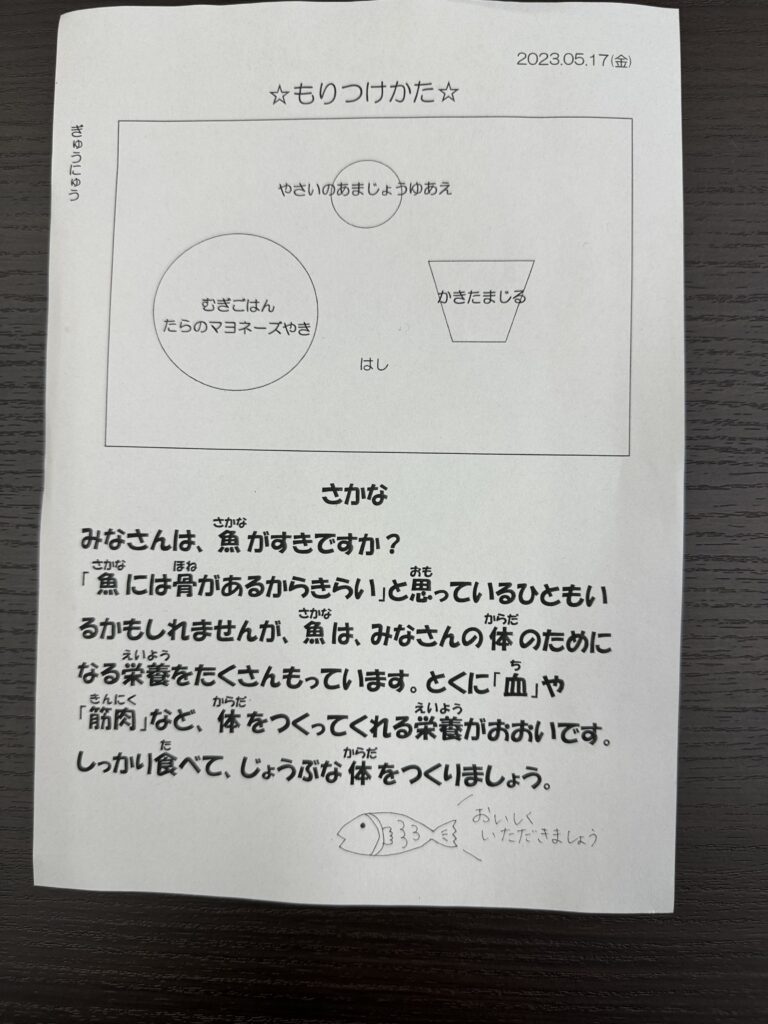 2023.05.17(金)
☆もりつけかた☆
ぎゅうにゅう
やさいのあまじょうゆあえ
むぎごはん
たらのマヨネーズやき
かきたまじる
はし
さかな
みなさんは、魚がすきですか？
「魚には骨があるからきらい」と思っているひともい
るかもしれませんが、魚は、みなさんの体のために
なる栄養をたくさんもっています。とくに「血」や
「筋肉」など、体をつくってくれる栄養がおおいです。
しっかり食べて、じょうぶな体をつくりましょう。
おいしく
いただきましょう